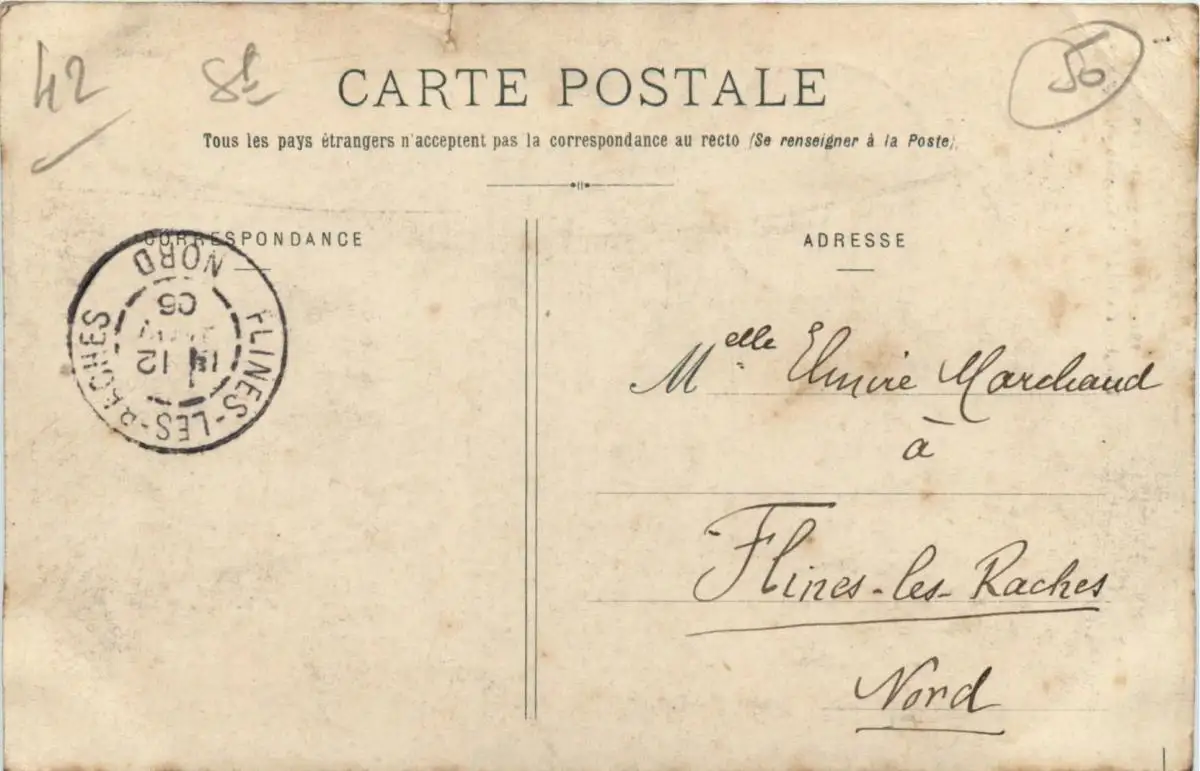 42
50
CARTE POSTALE
Tous les pays étrangers n'acceptent pas la correspondance au recto (Se renseigner à la Poste).
CORRESPONDANCE
ADRESSE
FLINES-LES-RACHES
NORD
12
06
Melle Elmire Marchand
à
Flines-les-Raches
Nord